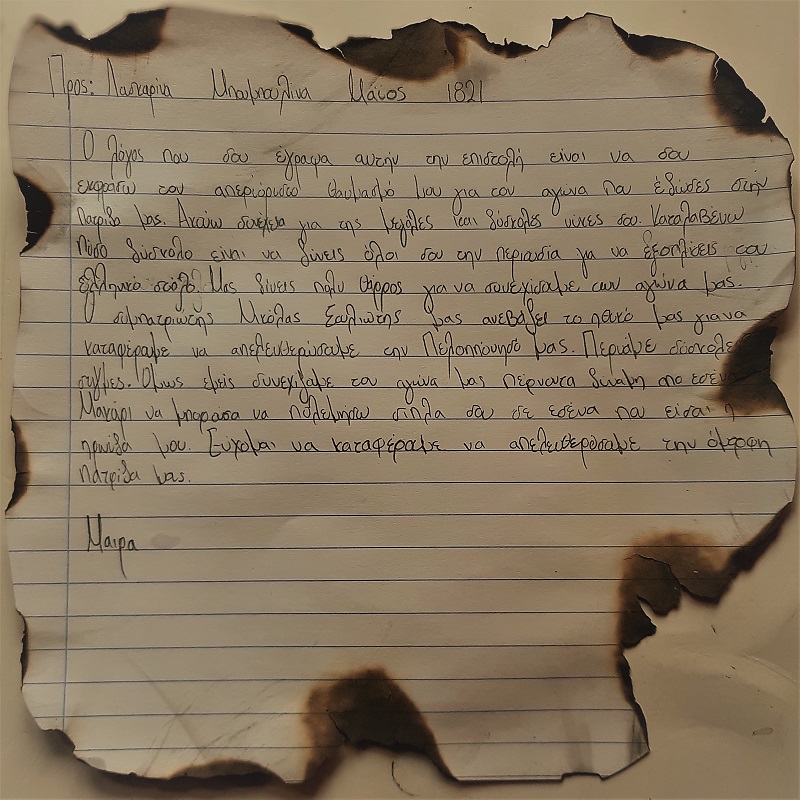 Προς: Λασκαρίνα Μπουμπουλίνα Μάϊος 1821
Ο λόγος που σου έγραψα αυτήν την επιστολή είναι να σου
εκφράσω τον απεριόριστο θαυμασμό μου για τον αγώνα που έδωσες στην
Πατρίδα μας. Ακούω συνέχεια για της μεγάλες και δύσκολες νίκες σου. Καταλαβένω
πόσο δύσκολο είναι να δίνεις όλοι σου την περιουσία για να εξοπλίσεις τον
ελληνικό στόλο. Μας δίνεις πολύ θάρρος για να συνεχίσουμε των αγώνα μας.
Ο συμπατριώτης Νικόλας μας ανεβάζει το ηθικό μας για να
καταφέραμε να απελευθερώσουμε την Πελοπόννησό μας. Περνάμε δύσκολες
στιγμές. Όμως εμείς συνεχίζουμε τον αγώνα μας πέρνοντα δύναμη από εσένα
Μακάρι να μπορούσα να πολεμήσω δίπλα σου σε εσένα που είσαι η
ηρωίδα μου. Εύχομαι να καταφέρουμε να απελευθερόσουμε την όμορφη
πατρίδα μας.
Μαιρα